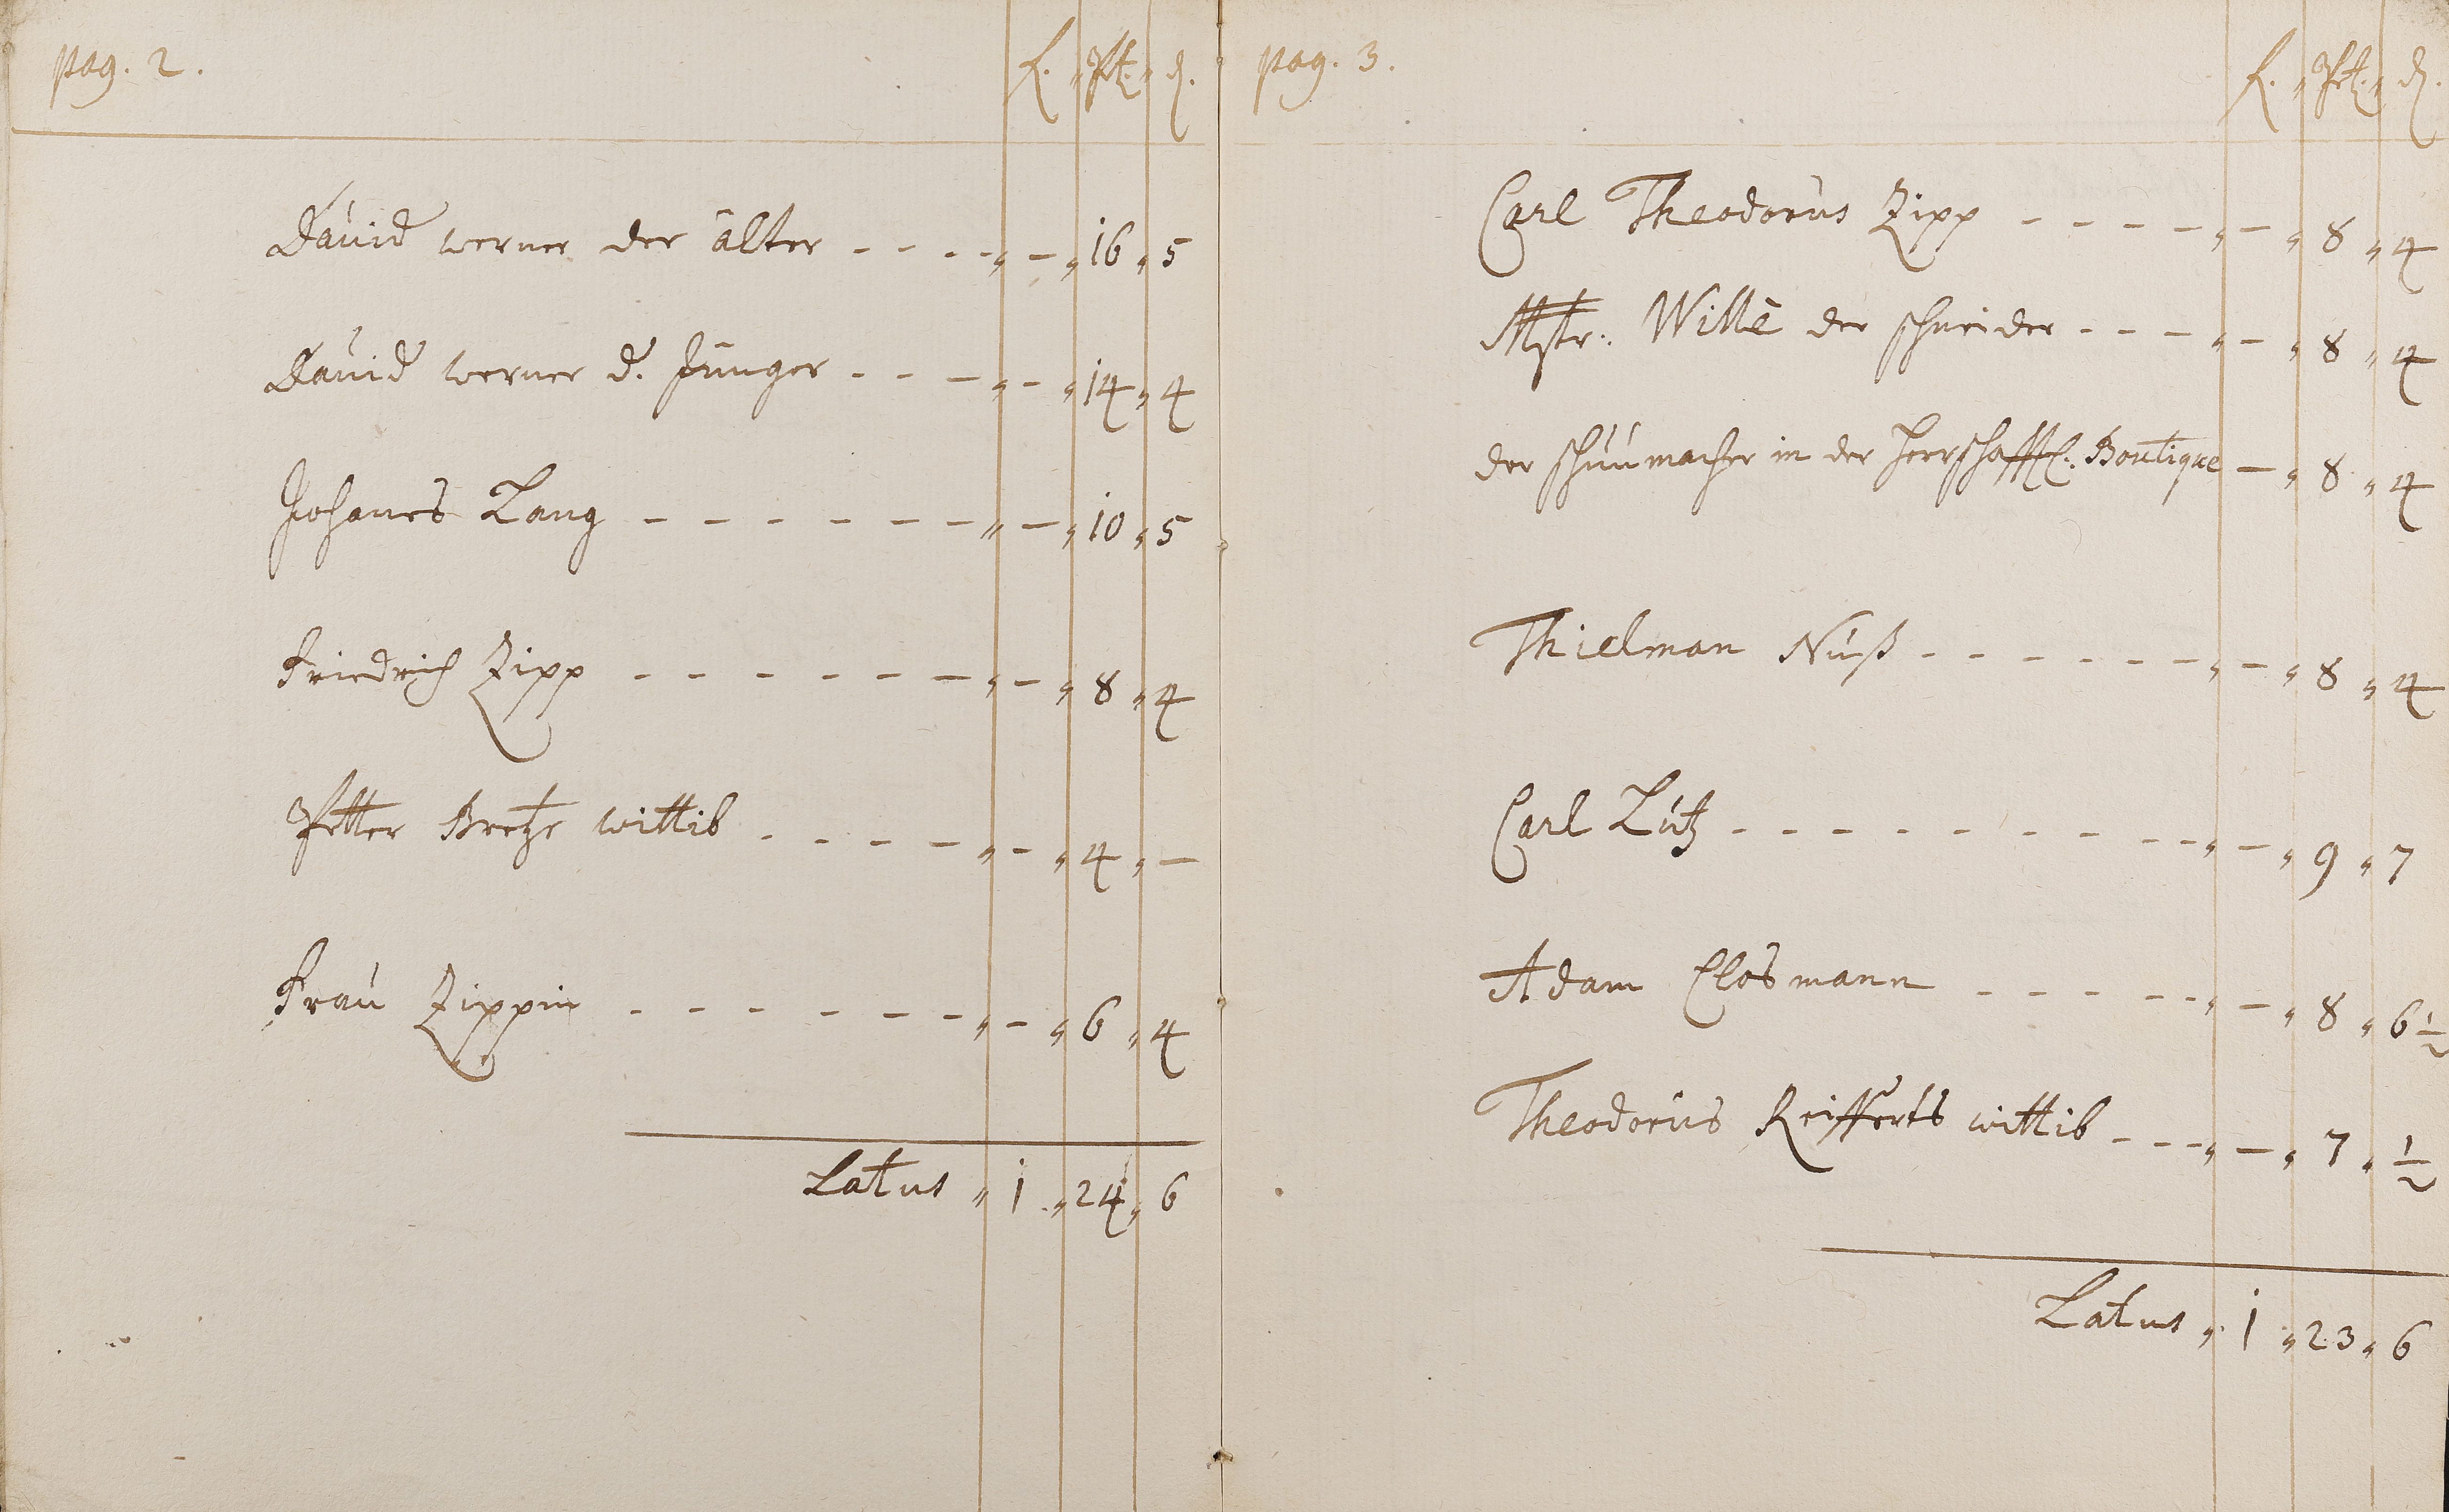 pag. 2. f. " Pt. " d.
David werner der älter - - - - " - " 16 " 5
David werner d. Jünger - - - " - " 14 " 4
Johanes Lang - - - - - - " - " 10 " 5
Friedrich Zipp - - - - - - " - " 8 " 4
Petter Bretze wittib - - - - " - " 4 " -
Fraŭ Zippin - - - - - - " - " 6 " 4
Latus " 1 " 24 " 6
pag. 3. f. " Pt. " d.
Carl Theodorŭs Zipp - - - - " - " 8 " 4
Mstr: Wille der schneider - - - " - " 8 " 4
der schŭŭmacher in der Herrschafftl. Boutique - " 8 " 4
Thielman Nŭß - - - - - - " - " 8 " 4
Carl Lŭtz - - - - - - - - - " - " 9 " 7
Adam Closmann - - - - - " - " 8 " 6 ½
Theodorŭs Reifferts wittib - - - " - " 7 " ½
Latus " 1 " 23 " 6